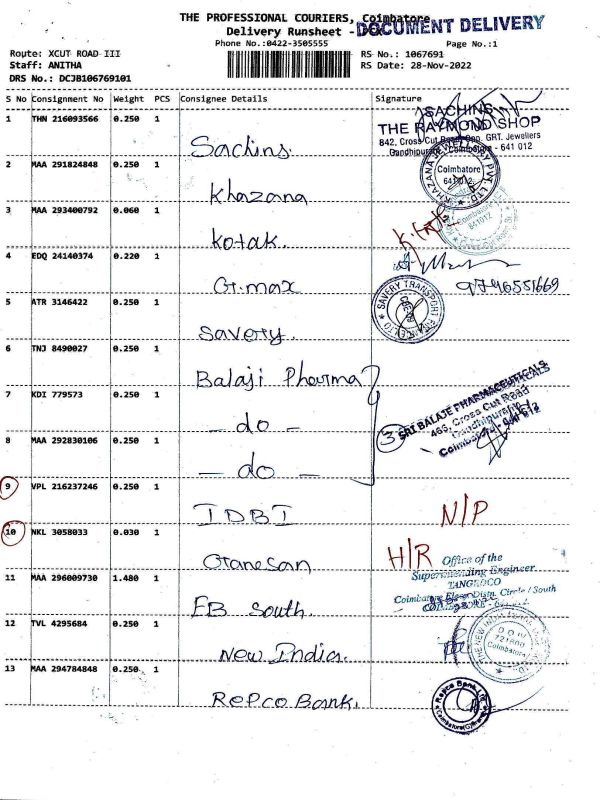 THE PROFESSIONAL COURIERS, Coimbatore
Delivery Runsheet - DOCUMENT DELIVERY
Phone No.:0422-3505555 Page No.:1
Route: XCUT ROAD III RS No.: 1067691
Staff: ANITHA RS Date: 28-Nov-2022
DRS No.: DCJB106769101
S No Consignment No Weight PCS Consignee Details Signature
1 THN 216093566 0.250 1 Sachins.
SACHINS
THE RAYMOND SHOP
842, Cross Cut Road, Opp. GRT. Jewellers
Gandhipuram, Coimbatore - 641 012
2 MAA 291824848 0.250 1 Khazana
KHAZANA JEWELLERY PVT. LTD.
Coimbatore
641 012
3 MAA 293400792 0.060 1 Kotak.
Coimbatore
641012
4 EDQ 24140374 0.220 1 G.max
9746551669
5 ATR 3146422 0.250 1 Savery.
SAVERY TRANSPORT FINANCE
6 TNJ 8490027 0.250 1 Balaji Pharma
7 KDI 779573 0.250 1 - do -
3 SRI BALAJE PHARMACEUTICALS
466, Cross Cut Road
Gandhipuram
Coimbatore - 641 012
8 MAA 292830106 0.250 1 - do -
9 VPL 216237246 0.250 1 IDBI N/P
10 NKL 3058033 0.030 1 H/R
Office of the
Superintending Engineer
TANGEDCO
Coimbatore Elec. Distn. Circle / South
COIMBATORE
11 MAA 296009730 1.480 1 EB South.
12 TVL 4295684 0.250 1 New India.
THE NEW INDIA
D O IV
721800
Coimbatore
13 MAA 294784848 0.250 1 Repco Bank.
Repco Bank Ltd
Coimbatore